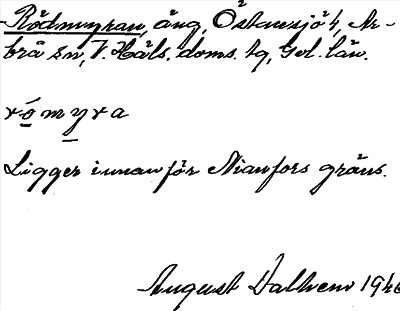 Rödmyran, äng, Östansjö 4, Ar-
brå sn, V. Häls. doms. tg, Gvl. län.
römyra
Ligger innanför Nianfors gräns.
August Dalhem 1946